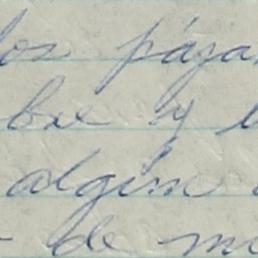 los pája
bre y l
algún
de m